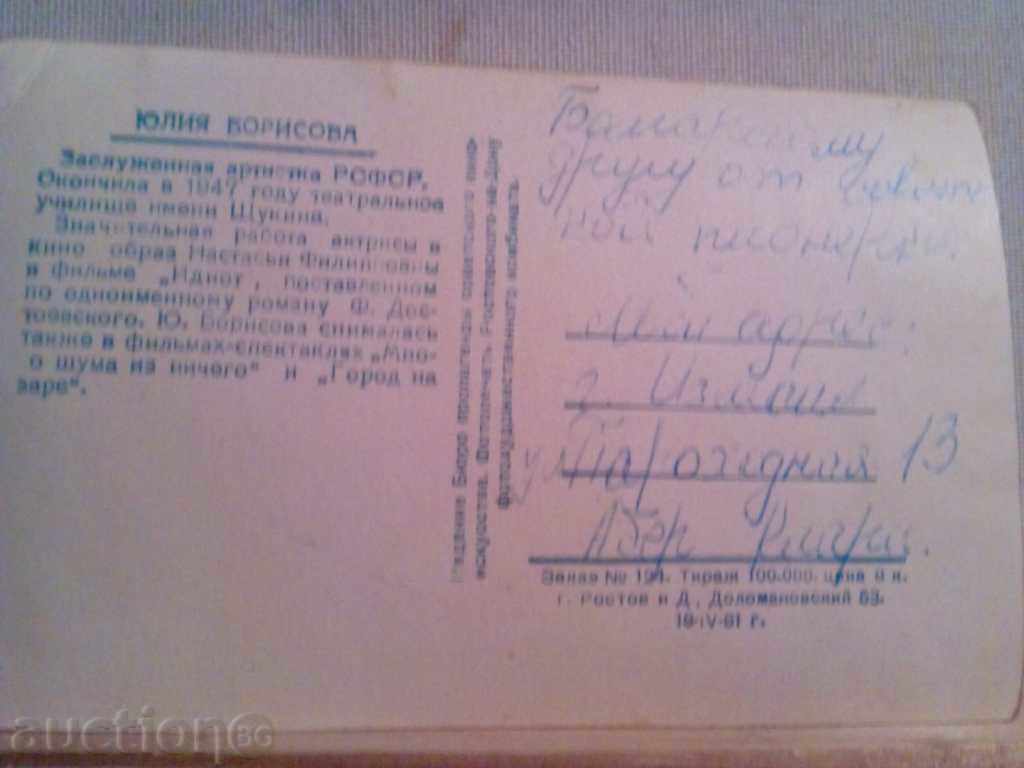 ЮЛИЯ БОРИСОВА
Заслуженная артистка РСФСР.
Окончила в 1947 году театральное
училище имени Щукина.
Значительная работа актрисы в
кино образ Настасьи Филипповны
в фильме „Идиот", поставленном
по одноименному роману Ф. Дос-
тоевского. Ю. Борисова снималась
также в фильмах-спектаклях „Мно-
о шума из ничего" и „Город на
заре".
Издание Бюро пропаганды советского кино-
искусства. Фотопечать Ростовского-на-Дону
фотохудожественного комбината.
другу от
ной пионерки.
Мой адрес:
г. Измаил
ул 13
Абер
Заказ № 194. Тираж 100.000. цена 8 к.
г. Ростов н Д., Доломановский 63.
19-IV-61 г.
auction BG